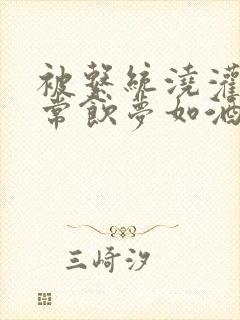 被繫統澆灌
常飲夢如酒
三崎汐